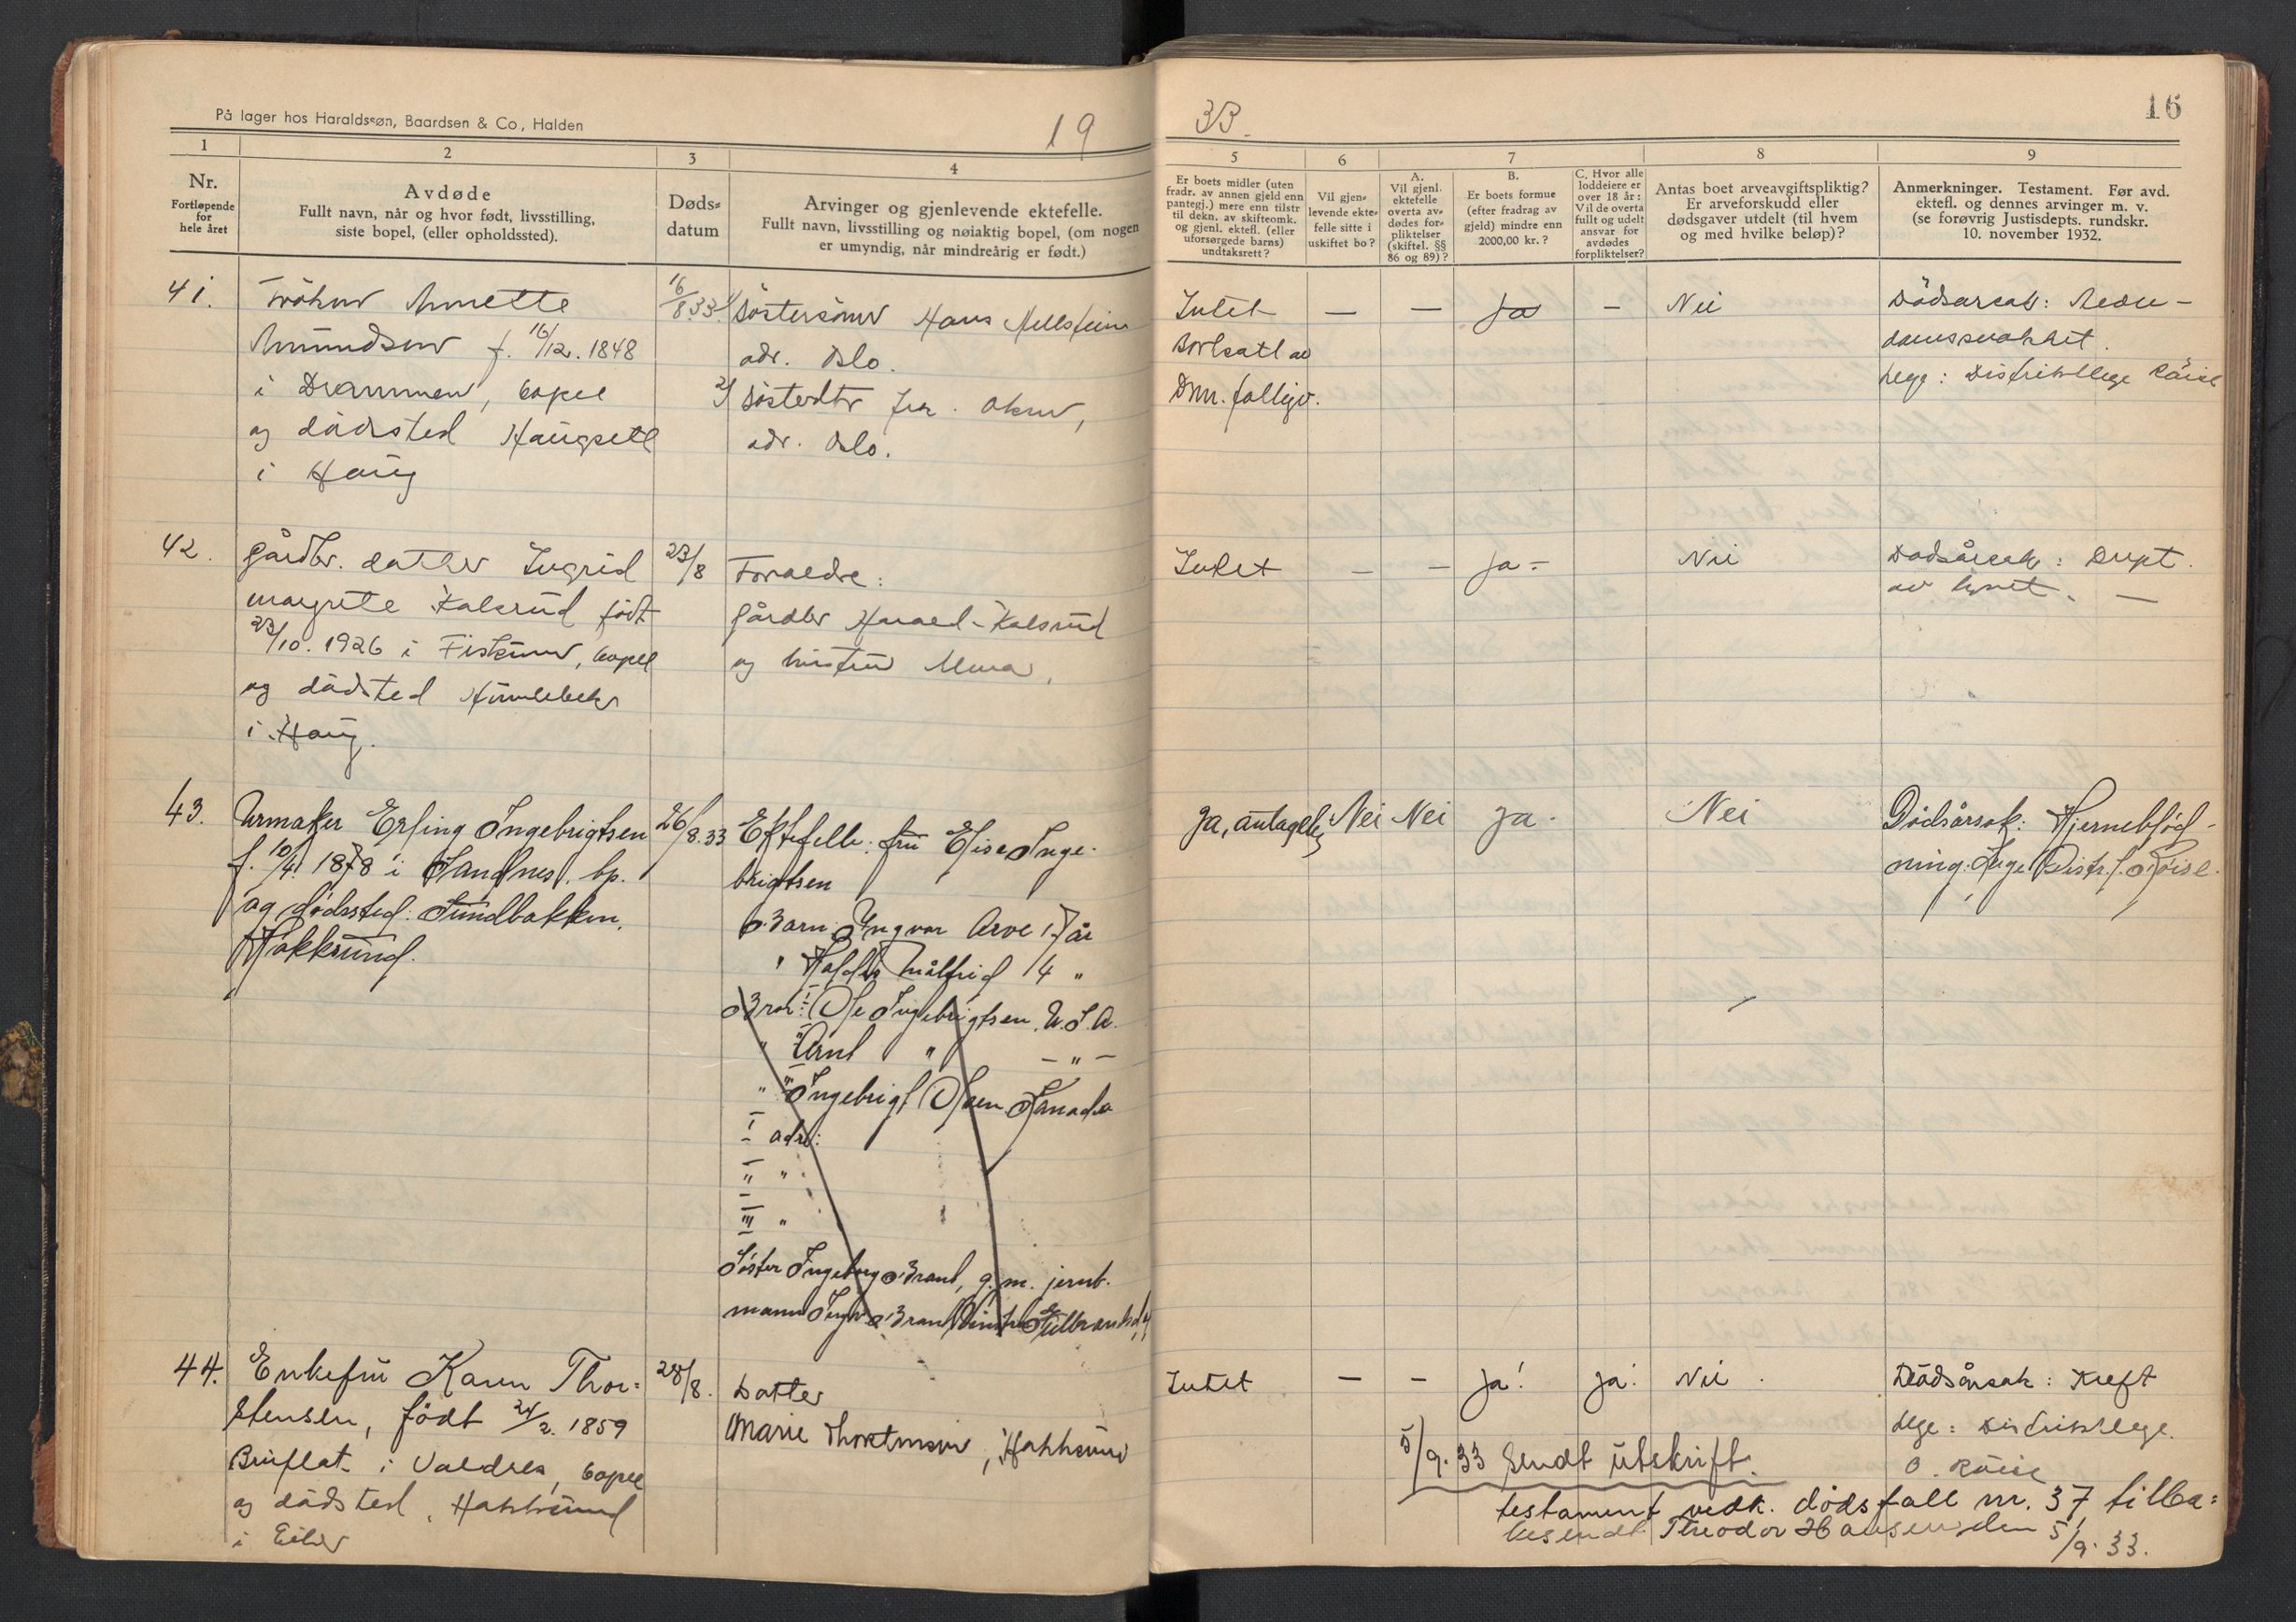 På lager hos Haraldssøn, Baardsen & Co., Halden
19
33.
16
1
2
3
4
5
6
7
8
9
Nr.
Fortløpende
for
hele året
Avdøde
Fullt navn, når og hvor født, livsstilling,
siste bopel, (eller opholdssted).
Døds-
datum
Arvinger og gjenlevende ektefelle.
Fullt navn, livsstilling og nøiaktig bopel, (om nogen
er umyndig, når mindreårig er født.)
Er boets midler (uten
fradr. av annen gjeld enn
pantegj.) mere enn tilstr
til dekn. av skifteomk.
og gjenl. ektefl. (eller
uforsørgede barns)
undtaksrett?
Vil gjen-
levende ekte-
felle sitte i
uskiftet bo?
A.
Vil gjenl.
ektefelle
overta av-
dødes for-
pliktelser
(skiftel. §§
86 og 89)?
B.
Er boets formue
(efter fradrag av
gjeld) mindre enn
2000,00 kr.?
C. Hvor alle
loddeiere er
over 18 år:
Vil de overta
fullt og udelt
ansvar for
avdødes
forpliktelser?
Antas boet arveavgiftspliktig?
Er arveforskudd eller
dødsgaver utdelt (til hvem
og med hvilke beløp)?
Anmerkninger. Testament. Før avd.
ektefl. og dennes arvinger m. v.
(se forøvrig Justisdepts. rundskr.
10. november 1932.
41.
Frøken Annette
Amundsen f. 16/12. 1848
i Drammen, bopel
og dødsted Haugsett
i Haug
16/8 33
1/ Søstersønn Hans
adr. Oslo.
2/ Søsterdtr
adr. Oslo.
Intet
Bortsatt av
Drm. fattigv.
—
—
Ja
—
Nei
Dødsårsak: Alder-
domssvakhet.
Lege: Distriktslege Røise
42.
Gårdbr. datter Ingrid
Margrete Kalsrud født
23/10. 1926 i Fiskum, bopel
og dødsted Humlebekk
i Haug.
23/8
Foreldre:
Gårdbr Harald Kalsrud
og hustru
Intet
—
—
Ja -
Nei
Dødsårsak: Drept
av lynet. —
43.
Urmaker Erling Ingebrigtsen
f. 10/4. 1878 i Sandnes. bp.
og dødssted: Sundbakken,
Hokksund.
26/8.33
Ektefelle: fru Elise Inge-
brigtsen
Barn: Yngvar Arve 17 år
" Målfrid 14 "
Bror: I Ole Ingebrigtsen. U.S.A.
" II Arnt " — " —
" III Ingebrigt Olsen Kanada
I adr:
II "
III "
Søster Ingeborg Brand, g. m. jernb.
mann Brand
Ja, antagelig
Nei
Nei
Ja.
Nei
Dødsårsak: Hjerneblød-
ning. Lege Distr.l. Røise.
44.
Enkefru Karen Thor-
stensen, født 24/2. 1859
Bruflat i Valdres, bopel
og dødsted, Hokksund
i Eiker
28/8.
Datter
Marie Thorstensen, Hokksund
Intet
—
—
Ja!
Ja!
Nei.
Dødsårsak: Kreft
Lege: Distriktslege.
O. Røise
5/9.33 Sendt utskrift.
testament vedk. dødsfall nr. 37, tilba-
kesendt Theodor Hansen den 5/9.33.